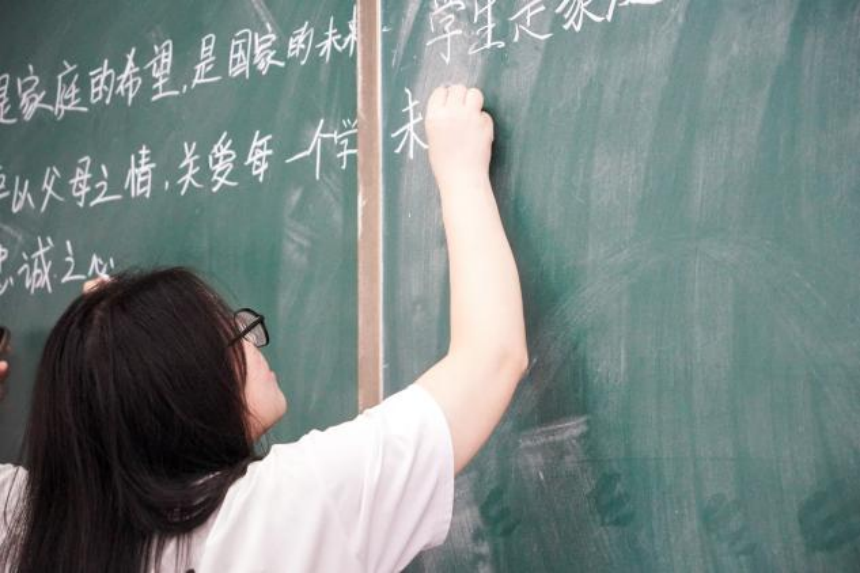 是家庭的希望,是国家的未来
以父母之情,关爱每一个学
忠诚之心
学生是家庭
未